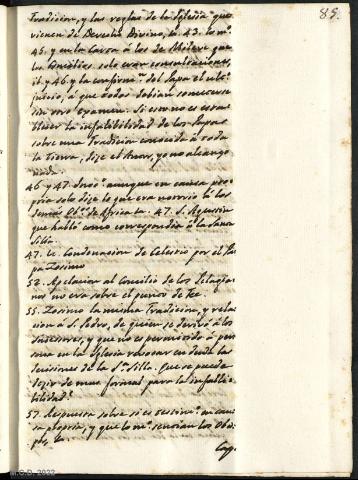 85.
Tradicion, y las reglas de la Iglesia que
vienen de Derecho Divino, lo 43. lo m.º
45. y en la Carta à los de Mileve que
los Concilios solo eran consultaciones,
it. y 46. y la confirm.n del Papa el ult.º
juicio, à que todos debian someterse
sin otro examen. Si esto no es esta-
blecer la infalibilidad de los Papas
sobre una Tradicion conocida à toda
la tierra, dize el Autor, yo no alcanzo
46 y 47. Inno.º aunque en causa pro-
pria solo dize lo que era notorio à los
demás Ob.s de Africa la. 47. S. Agustin
que habló como correspondia à la Santa
Silla.
47. la Condenacion de Celestio por el Pa-
pa Zosimo
52. Apelacion al Concilio de los Pelagia-
nos no era sobre el punto de Fee.
55. Zosimo la misma Tradicion, y rela-
cion à S. Pedro, de quien se derivó à los
Sucesores, y que no es permitido à per-
sona en la Iglesia revocar en duda las
decisiones de la S.ta Silla. Que se puede
dezir de mas formal para la infalibi-
bilidad?
57. Respuesta sobre si es testim.º en causa
propria, y que lo m.º sentian los Obis-
pos, la
Cap.
M.C.D. 2022